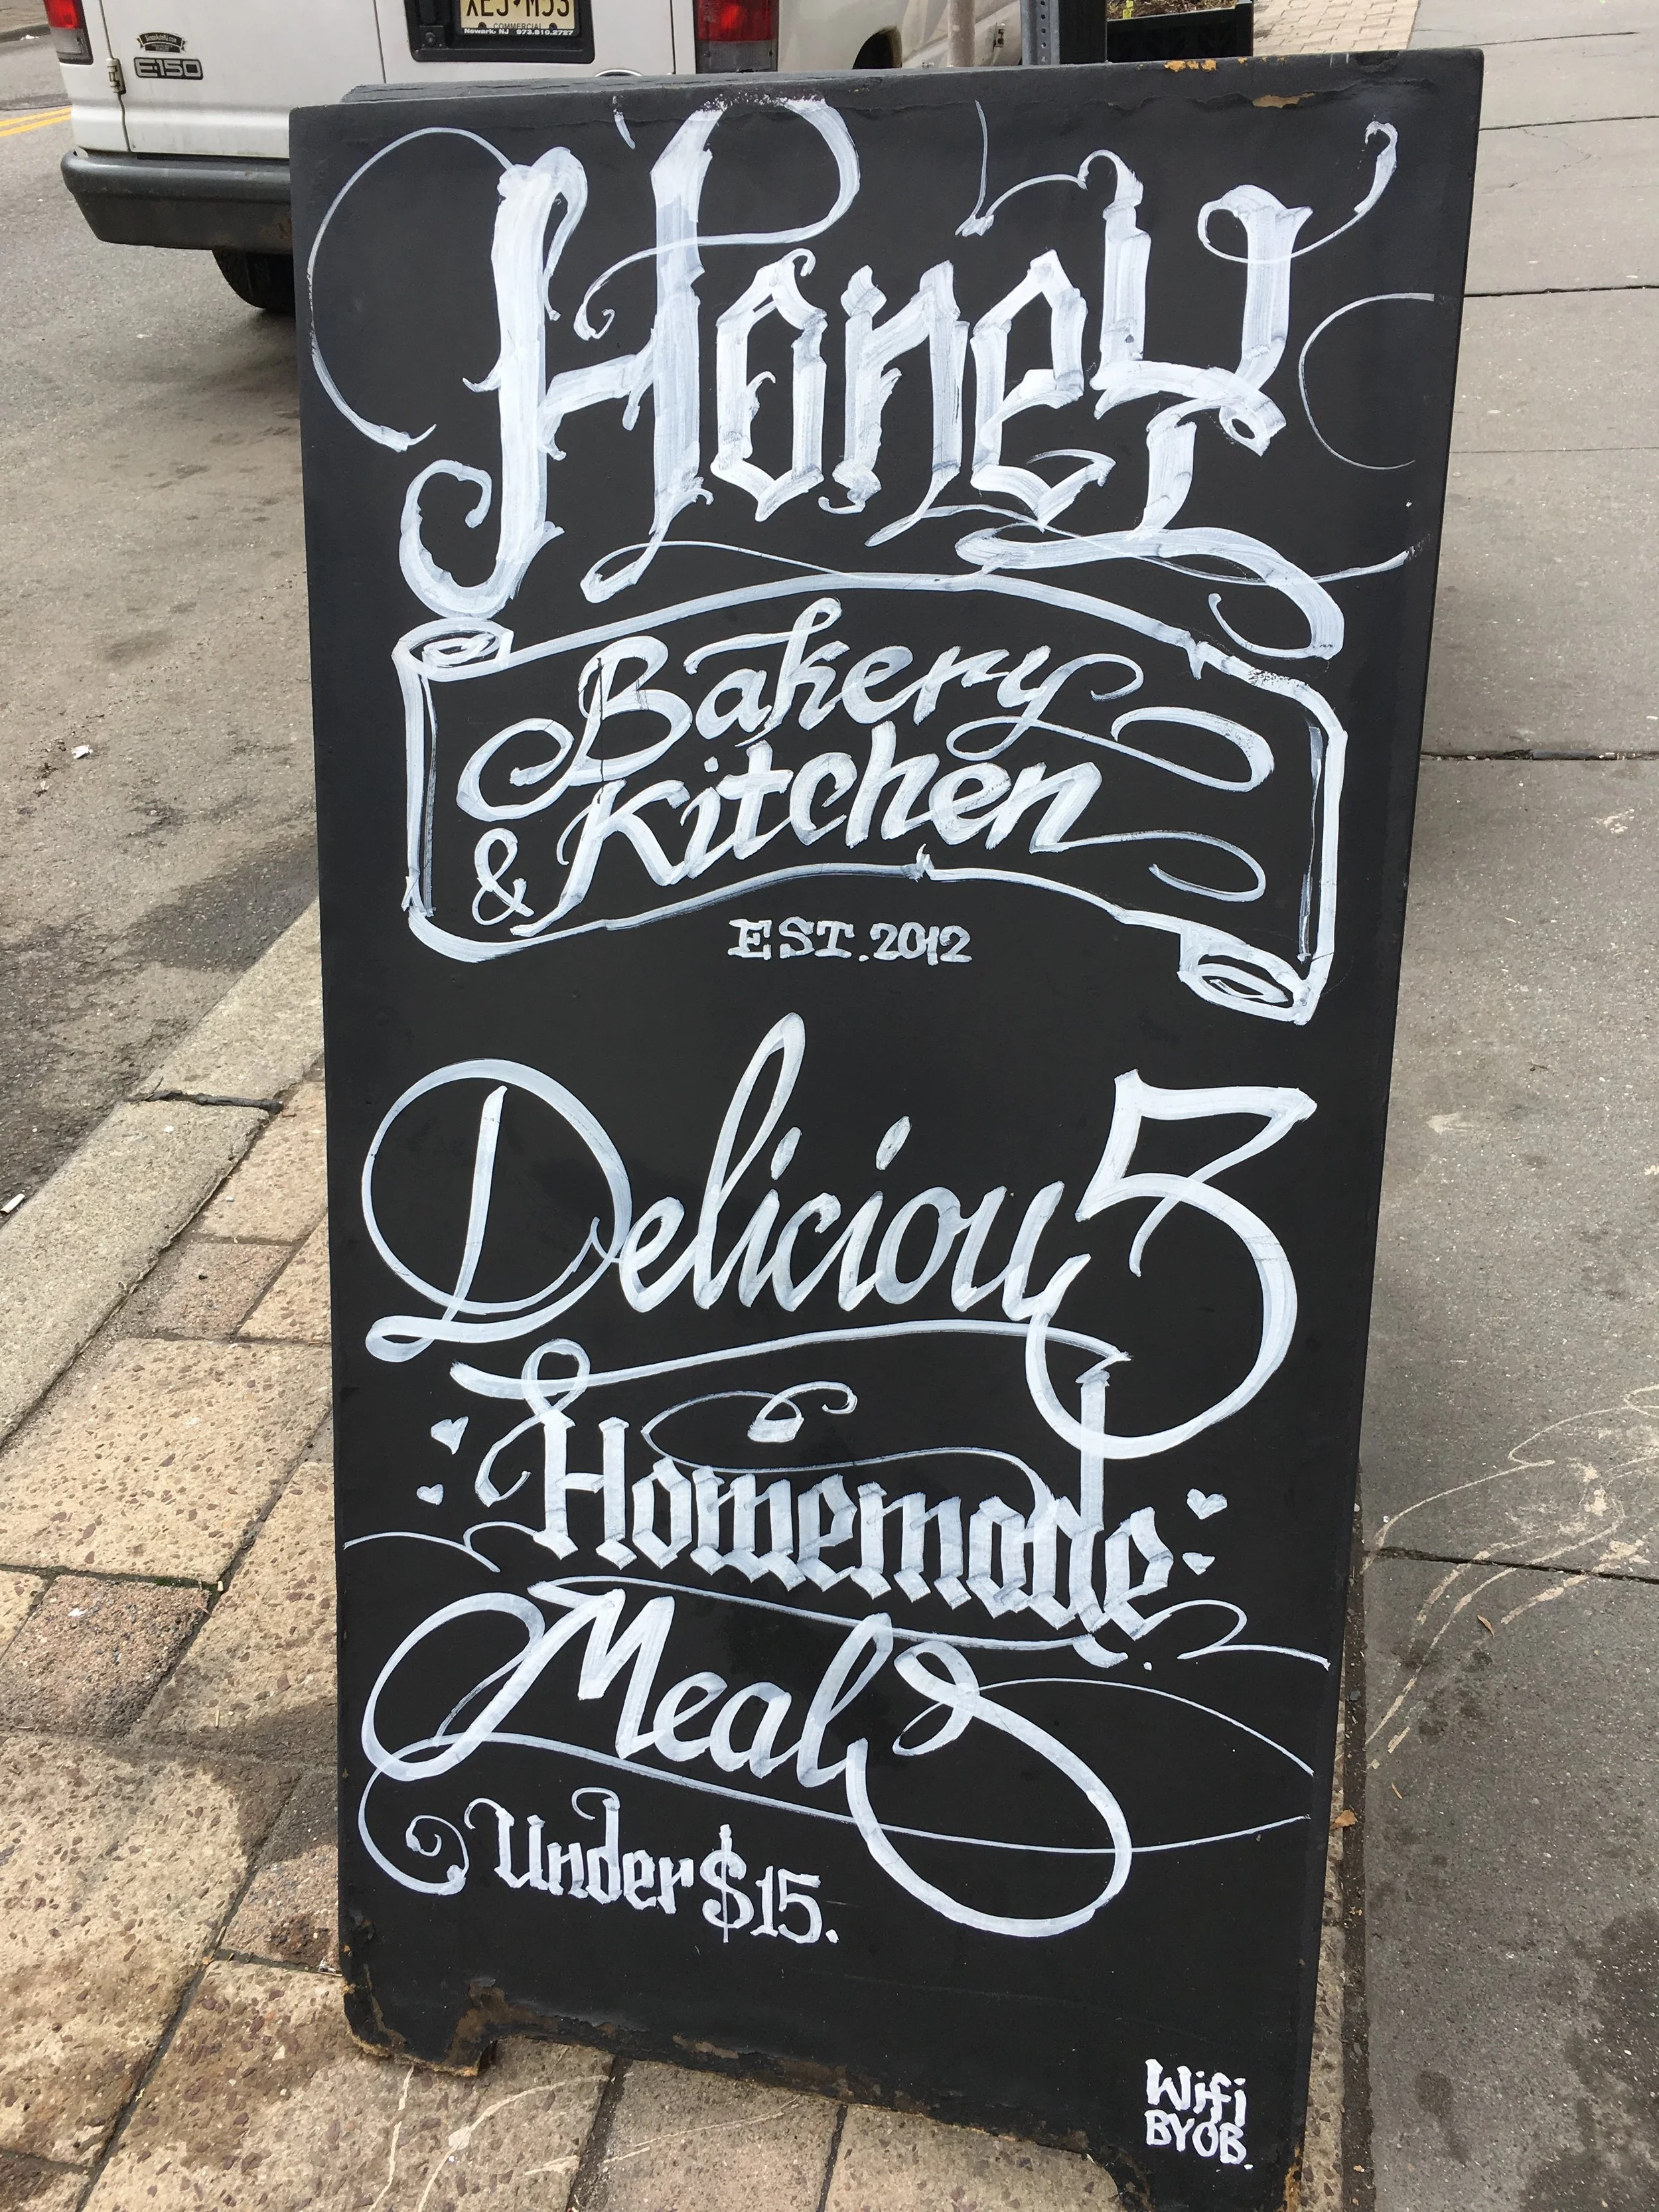 E-150
COMMERCIAL
Newark, NJ 973.610.2727
Honey
Bakery
& Kitchen
EST. 2012
Delicious
Homemade
Meals
Under $15.
Wifi
BYOB.